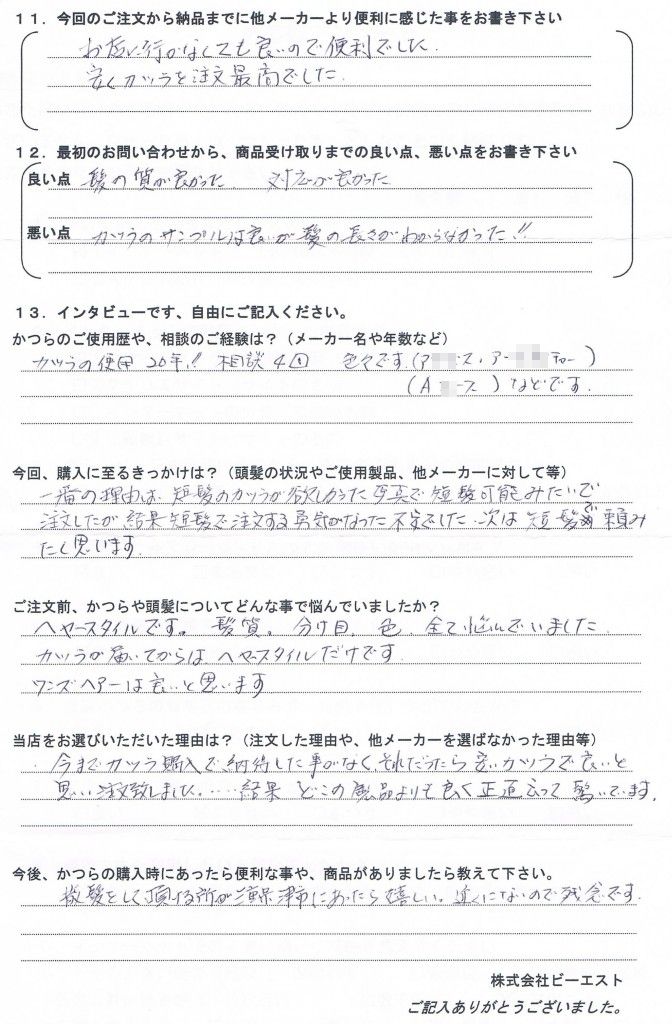 11．今回のご注文から納品までに他メーカーより便利に感じた事をお書き下さい
お店に行かなくても良いので便利でした
安くカツラを注文最高でした
12．最初のお問い合わせから、商品受け取りまでの良い点、悪い点をお書き下さい
良い点 髪の質が良かった 対応が良かった
悪い点 カツラのサンプルは良いが髪の長さがわからなかった!!
13．インタビューです、自由にご記入ください。
かつらのご使用歴や、相談のご経験は？（メーカー名や年数など）
カツラの使用 20年!! 相談 4回 色々です（ア ス，アー ）
（A ース ）などです．
今回、購入に至るきっかけは？（頭髪の状況やご使用製品、他メーカーに対して等）
一番の理由は、短髪のカツラが欲しかった 写真で短髪可能みたいで
注文したが、結果短髪で注文する勇気がなった 不安でした 次は短髪 頼み
たく思います
ご注文前、かつらや頭髪についてどんな事で悩んでいましたか？
ヘヤースタイルです。髪質，分け目，色，全て悩んでいました
カツラが届いてからは ヘヤースタイルだけです
ワンズヘアーは良いと思います
当店をお選びいただいた理由は？（注文した理由や、他メーカーを選ばなかった理由等）
今までカツラ購入で納得した事がなく、それだったら安いカツラで良いと
思い注文致しました。‥‥結果 どこの製品よりも良く正直言って驚いています．
今後、かつらの購入時にあったら便利な事や、商品がありましたら教えて下さい。
散髪をして頂ける所が 津市にあったら嬉しい。近くにないので残念です．
株式会社ビーエスト
ご記入ありがとうございました。